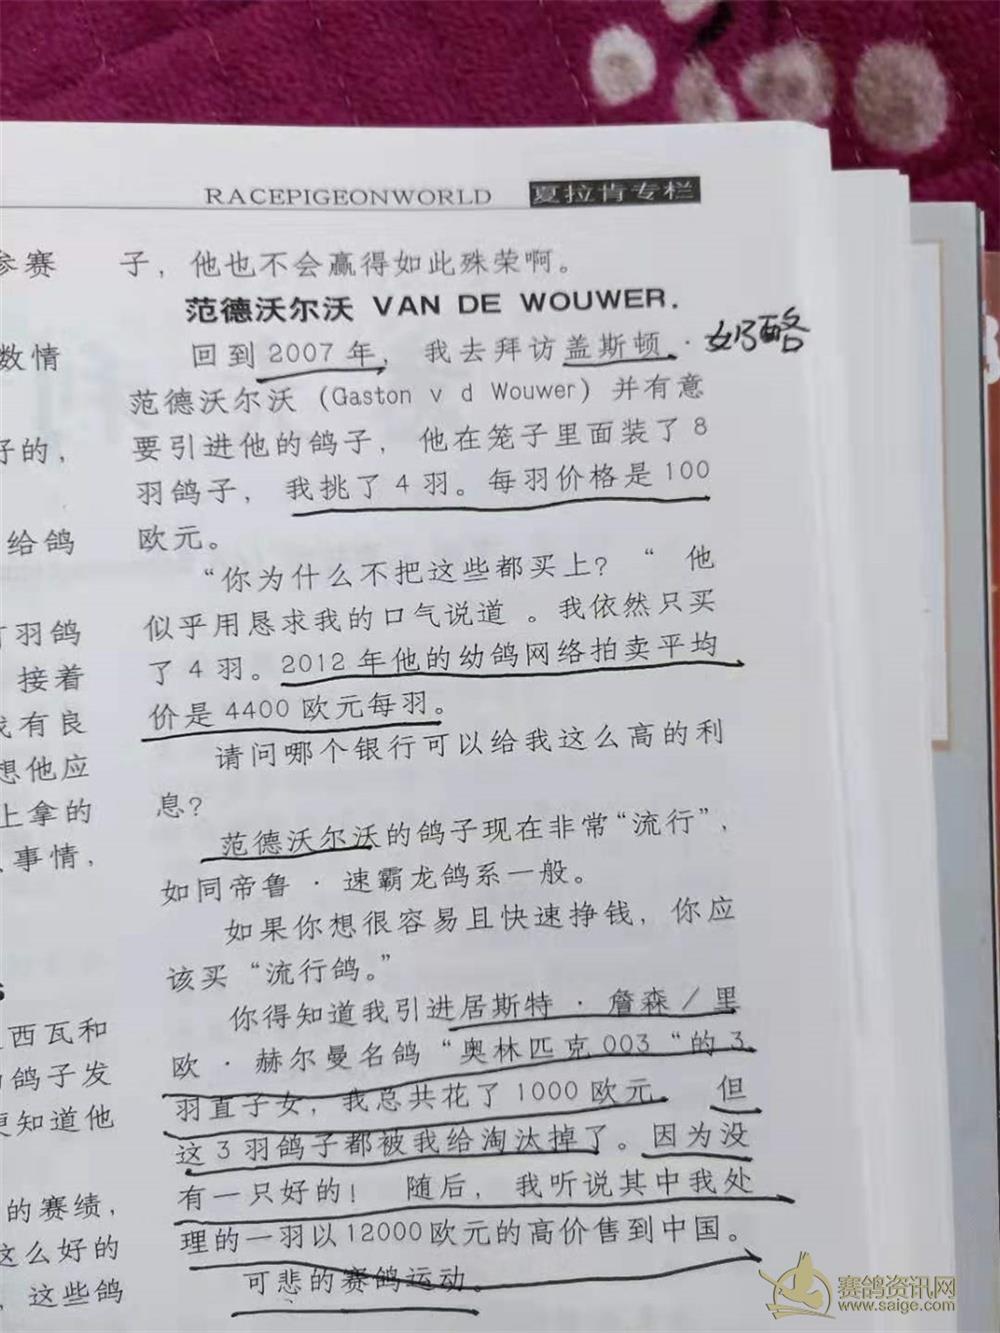 RACEPIGEONWORLD 夏拉肯专栏
参赛
数情
好的，
给鸽
羽鸽
接着
我有良
想他应
上拿的
事情，
s
西瓦和
的鸽子发
更知道他
的赛绩，
这么好的
，这些鸽
子，他也不会赢得如此殊荣啊。
范德沃尔沃 VAN DE WOUWER.
回到2007年，我去拜访盖斯顿·
奶酪
范德沃尔沃（Gaston v d Wouwer）并有意
要引进他的鸽子，他在笼子里面装了8
羽鸽子，我挑了4羽。每羽价格是100
欧元。
“你为什么不把这些都买上？“ 他
似乎用恳求我的口气说道 。我依然只买
了4羽。2012年他的幼鸽网络拍卖平均
价是4400欧元每羽。
请问哪个银行可以给我这么高的利
息？
范德沃尔沃的鸽子现在非常“流行”，
如同帝鲁·速霸龙鸽系一般。
如果你想很容易且快速挣钱，你应
该买“流行鸽。”
你得知道我引进居斯特·詹森／里
欧·赫尔曼名鸽“奥林匹克003“的3
羽直子女，我总共花了1000欧元。 但
这3羽鸽子都被我给淘汰掉了。因为没
有一只好的！ 随后，我听说其中我处
理的一羽以12000欧元的高价售到中国。
可悲的赛鸽运动。
赛鸽资讯网
www.saige.com